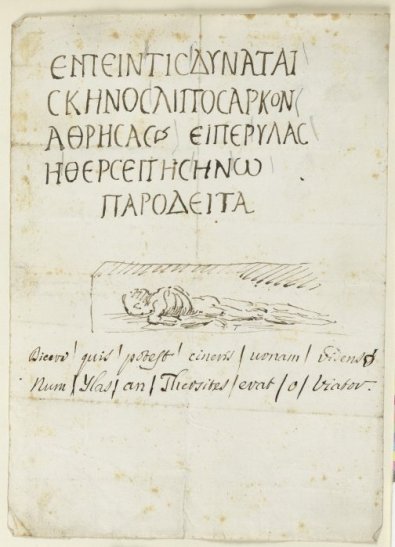 ΕΙΠΕΙΝΤΙϹΔΥΝΑΤΑΙ
ϹΚΗΝΟϹΛΙΠΟϹΑΡΚΟΝ
ΑΘΡΗϹΑϹ ΕΙΠΕΡΥΛΑϹ
ΗΘΕΡϹΕΙΤΗϹΗΝω
ΠΑΡΟΔΕΙΤΑ
Dicere / quis / potest / cineris / / videns
Num / Ylas / an / Thersites / erat / o / Viator.